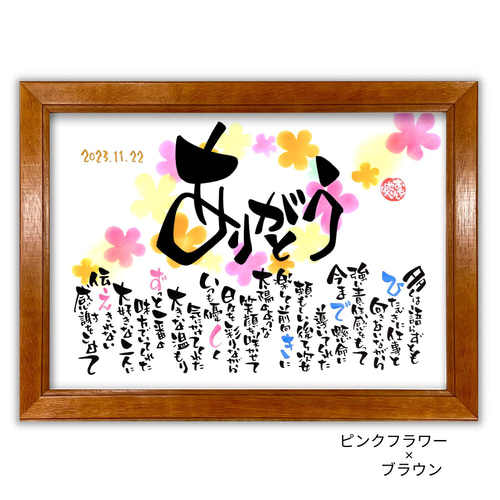 2023.11.22
ありがとう
多くは語らずとも
ひたむきに仕事と
向き合いながら
強い責任感をもって
今まで懸命に
導いてくれた
頼もしい後ろ姿
楽しく前向きに
太陽のような
笑顔を咲かせて
日々を彩りながら
いつも優しく
気づかってくれた
大きな温もり
ずっと一番の
味方でいてくれた
大好きな二人に
伝えきれない
感謝をこめて
ピンクフラワー
×
ブラウン